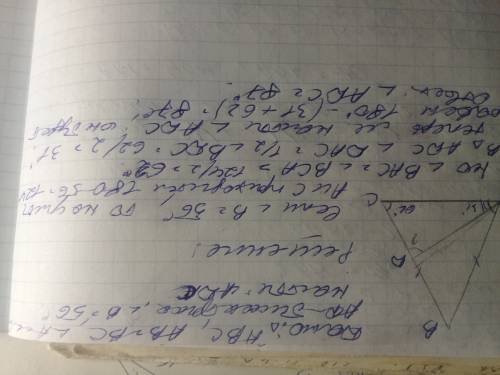 Дано: △ABC, AB=BC
AD-биссектриса, ∠B=56°
Найти: ADC
Решение:
Если ∠B=56°, то на углы
A и C приходится 180-56=124
Но ∠BAC=∠BCA=124/2=62°
В △ADC ∠DAC=1/2 ∠BAC=62/2=31°
Теперь найти ∠ADC, он будет
равен 180°-(31+62)=87°
Ответ: ∠ADC=87°
B
D
?
C
62°
31°